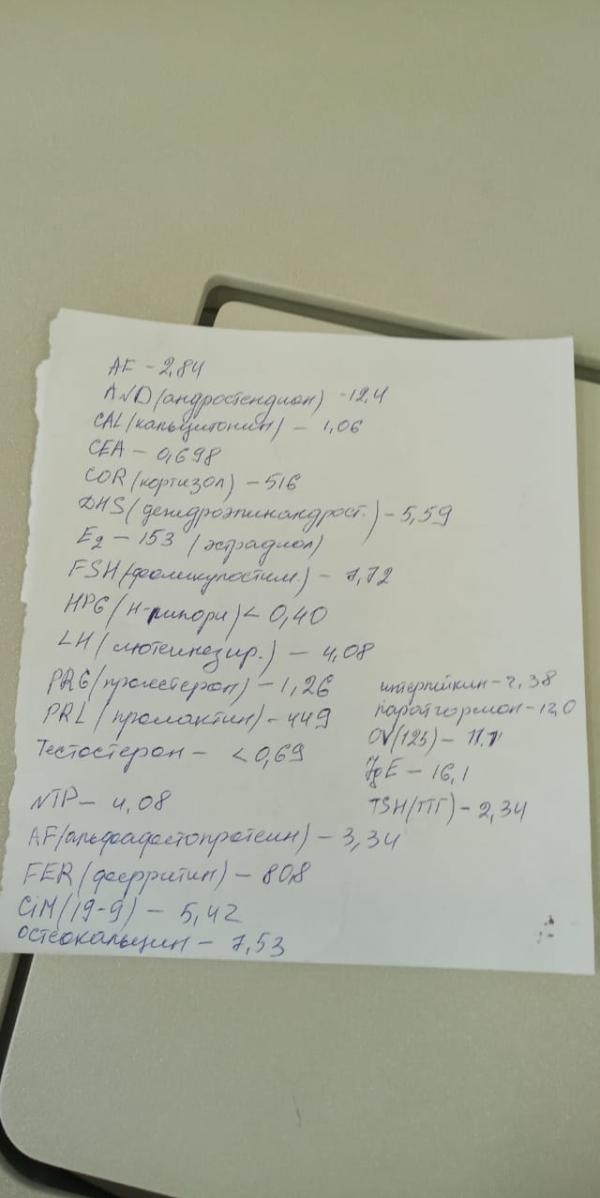 AF - 2,84
AND (андростендион) - 12,4
CAL (кальцитонин) - 1,06
CEA - 0,698
COR (кортизол) - 516
DHS (дегидроэпинандрост.) - 5,59
E2 - 153 (эстрадиол)
FSH (фоликулостим.) - 7,72
HPG (H-пилори) < 0,40
LH (лютеинезир.) - 4,08
PRG (прогестерон) - 1,26
PRL (пролактин) - 449
Тестостерон - < 0,69
NTP - 4,08
AF (альфафетопротеин) - 3,34
FER (ферритин) - 80,8
CiM (19-9) - 5,42
остеокальцин - 7,53
интерлейкин - 2,38
паратгормон - 12,0
OV (125) - 11.1
IgE - 16,1
TSH (ТТГ) - 2,34